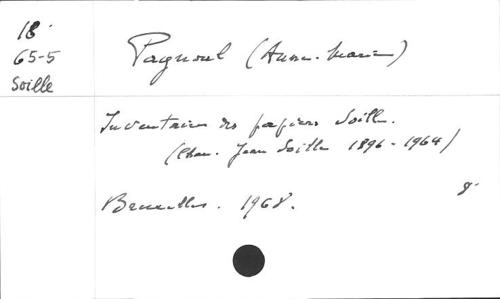 18
65-5
Soille
Pagnoul (Anne-Marie)
Inventaire des papiers Soille.
(Chan. Jean Soille 1896-1964)
Bruxelles. 1968.
8°